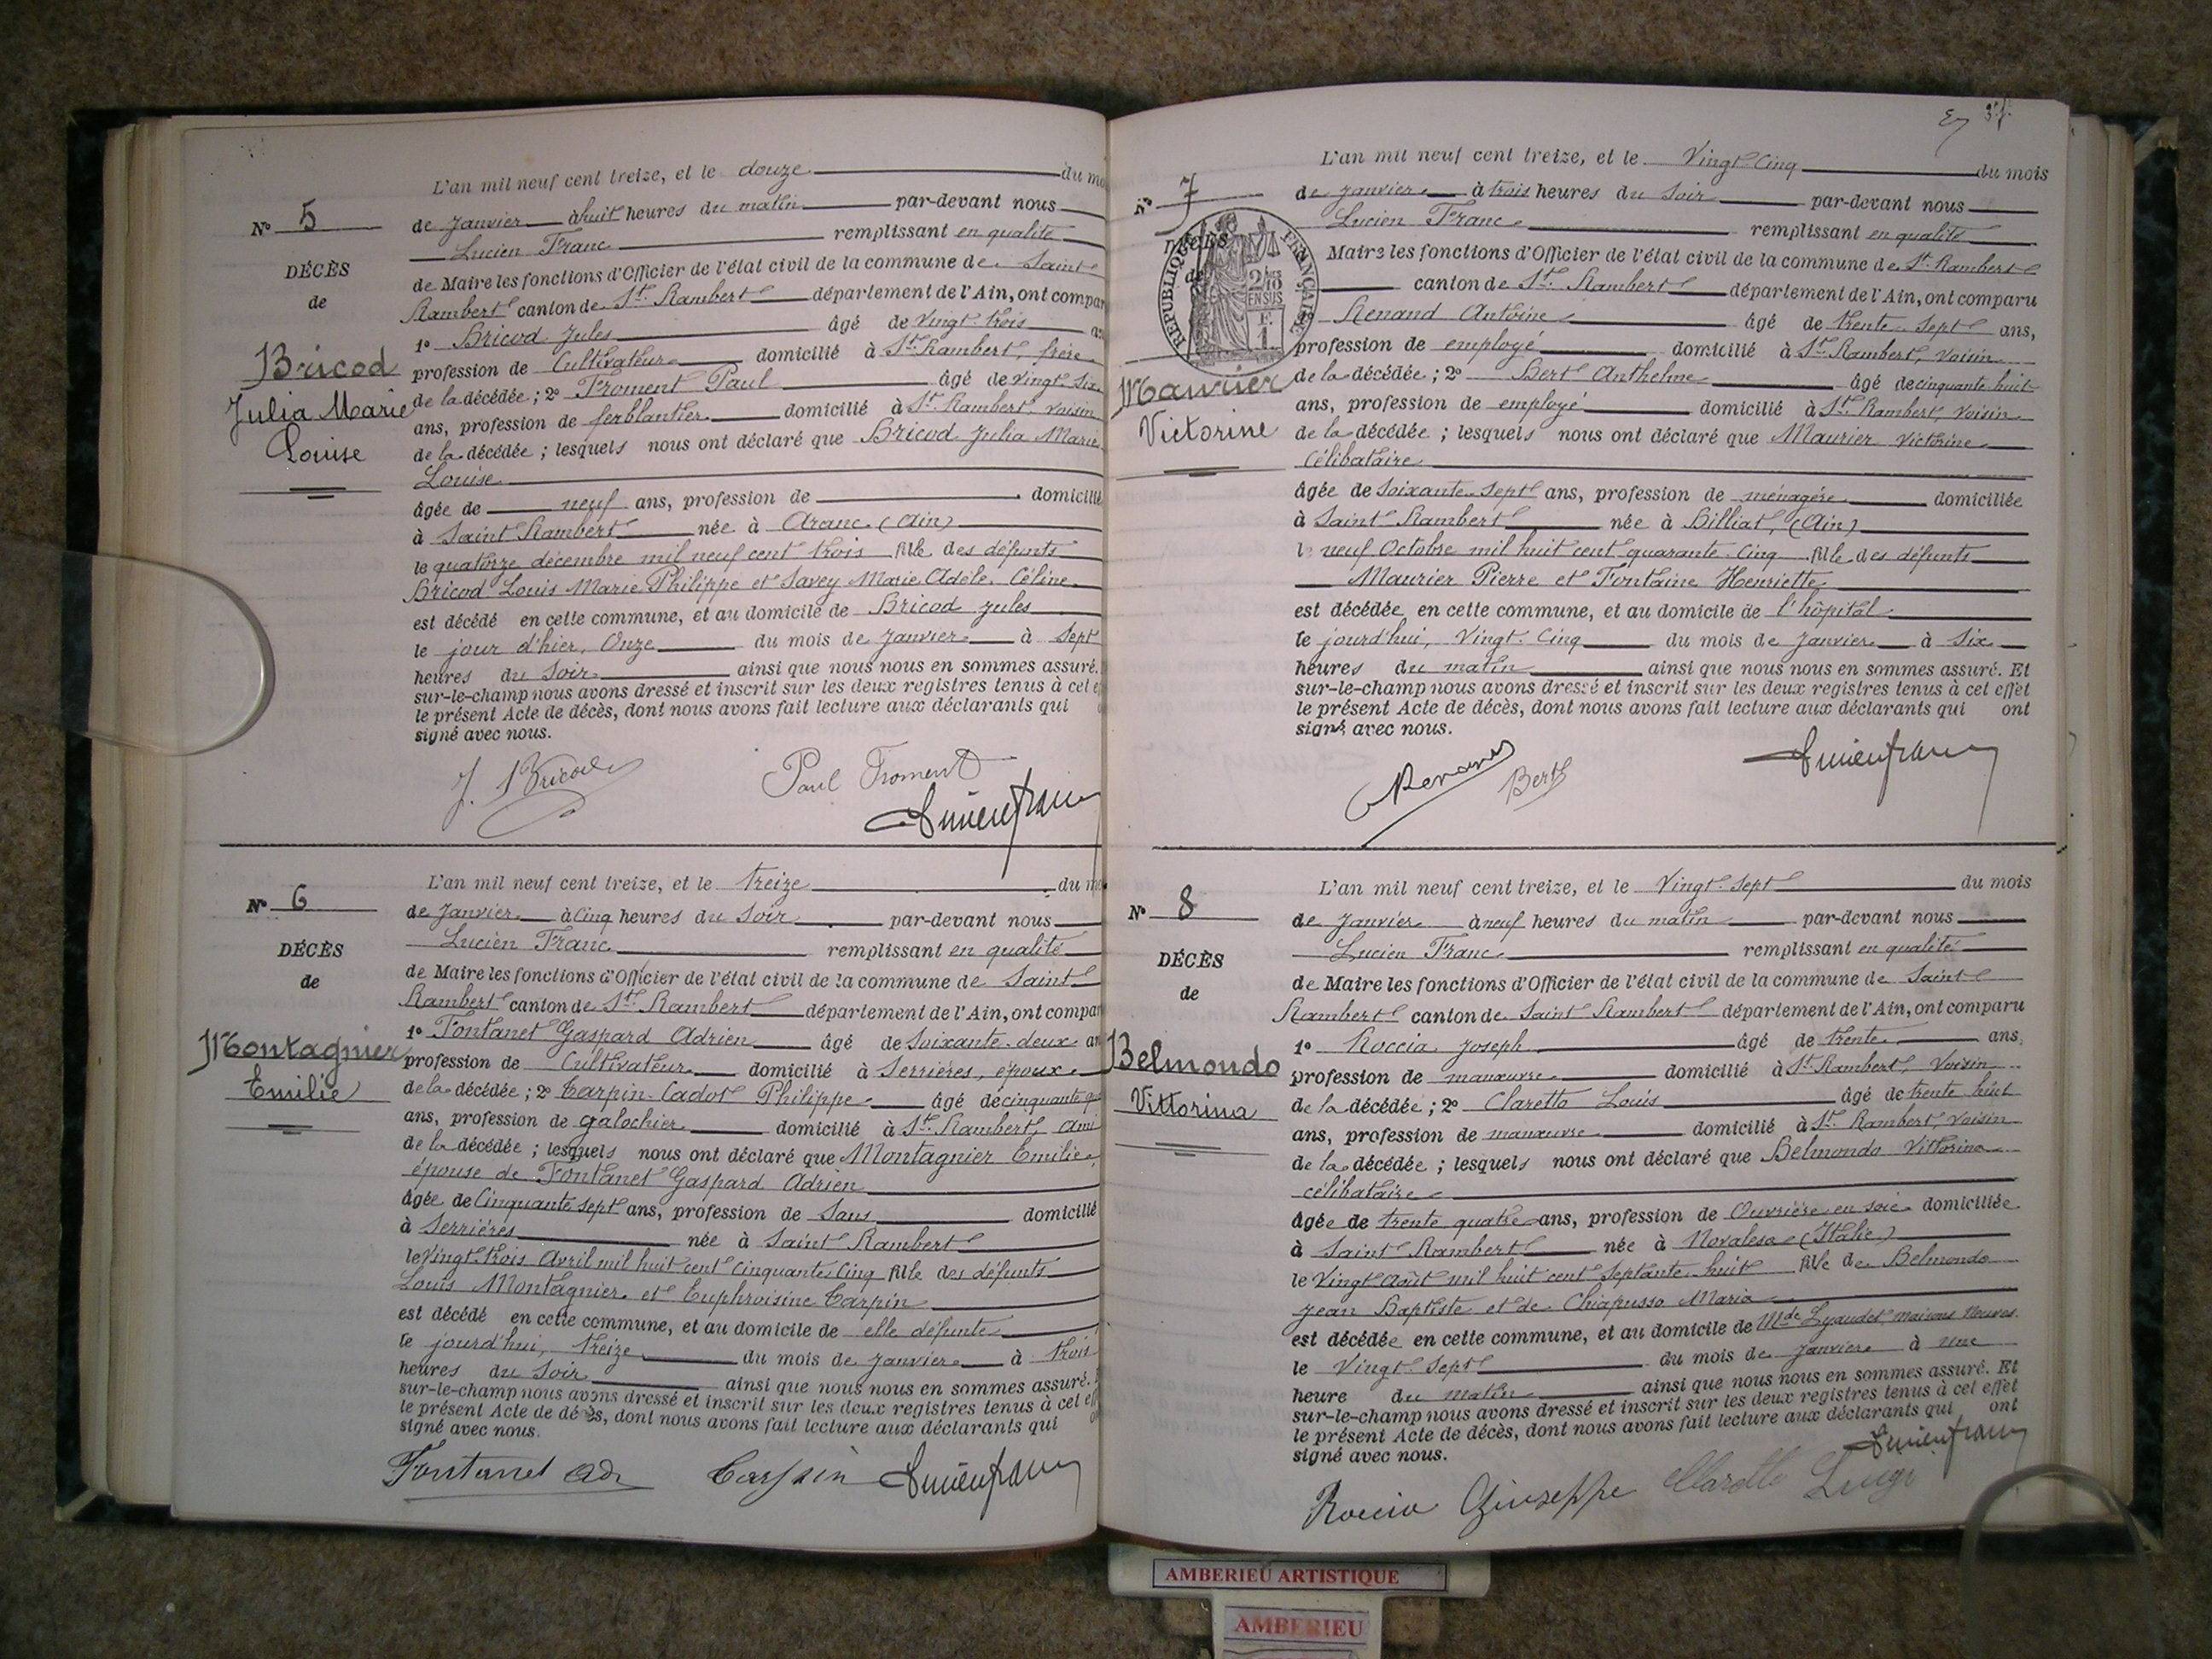 L'an mil neuf cent treize, et le douze du mo
Nº 5
de Janvier à huit heures du matin par-devant nous
Lucien Franc remplissant en qualité
DÉCÈS
de Maire les fonctions d'Officier de l'état civil de la commune de Saint
de
Rambert canton de St. Rambert département de l'Ain, ont compar
1º Bricod Jules âgé de vingt-trois an
Bricod
profession de Cultivateur domicilié à St. Rambert, frère
Julia Marie
de la décédée ; 2º Froment Paul âgé de vingt-six
ans, profession de ferblantier domicilié à St. Rambert, voisin
Louise
de la décédée ; lesquels nous ont déclaré que Bricod Julia Marie
Louise
âgée de neuf ans, profession de domicilié
à Saint Rambert née à Aranc (Ain)
le quatorze décembre mil neuf cent trois fille des défunts
Bricod Louis Marie Philippe et Savey Marie Adèle Céline
est décédé en cette commune, et au domicile de Bricod Jules
le jour d'hier, Onze du mois de Janvier à sept
heures du soir ainsi que nous nous en sommes assuré.
sur-le-champ nous avons dressé et inscrit sur les deux registres tenus à cet e
le présent Acte de décès, dont nous avons fait lecture aux déclarants qui
signé avec nous.
J. Bricod Paul Froment
Lucien Franc
L'an mil neuf cent treize, et le treize du m
Nº 6
de Janvier à cinq heures du soir par-devant nous
Lucien Franc remplissant en qualité
DÉCÈS
de Maire les fonctions d'Officier de l'état civil de la commune de Saint
de
Rambert canton de St. Rambert département de l'Ain, ont compar
1º Fontanet Gaspard Adrien âgé de soixante-deux an
Montagnier
profession de Cultivateur domicilié à Serrières, époux
Emilie
de la décédée ; 2º Carpin-Cadot Philippe âgé de cinquante
ans, profession de galochier domicilié à St. Rambert, ami
de la décédée ; lesquels nous ont déclaré que Montagnier Emilie,
épouse de Fontanet Gaspard Adrien
âgée de Cinquante sept ans, profession de Sans domicilié
à Serrières née à Saint Rambert
le Vingt-trois Avril mil huit cent cinquante cinq fille des défunts
Louis Montagnier et Euphroisine Carpin
est décédé en cette commune, et au domicile de elle défunte
le jourd'hui, treize du mois de Janvier à trois
heures du soir ainsi que nous nous en sommes assuré.
sur-le-champ nous avons dressé et inscrit sur les deux registres tenus à cet eff
le présent Acte de décès, dont nous avons fait lecture aux déclarants qui
signé avec nous.
Fontanet Adr Carpin Lucien Franc
L'an mil neuf cent treize, et le Vingt-cinq du mois
Nº 7
de Janvier à trois heures du soir par-devant nous
Lucien Franc remplissant en qualité
DÉCÈS
de
RÉPUBLIQUE FRANÇAISE
2/10 EN SUS
Maire les fonctions d'Officier de l'état civil de la commune de St. Rambert
canton de St. Rambert département de l'Ain, ont comparu
Renand Antoine âgé de trente-sept ans,
profession de employé domicilié à St. Rambert, voisin
Maurier
de la décédée ; 2º Bert Anthelme âgé de cinquante huit
ans, profession de employé domicilié à St. Rambert, voisin
Victorine
de la décédée ; lesquels nous ont déclaré que Maurier Victorine
Célibataire
âgée de Soixante-sept ans, profession de ménagère domiciliée
à Saint Rambert née à Billiat, (Ain)
le neuf Octobre mil huit cent quarante-cinq fille des défunts
Maurier Pierre et Fontaine Henriette
est décédée en cette commune, et au domicile de l'hôpital
le jourd'hui, Vingt-Cinq du mois de Janvier à six
heures du matin ainsi que nous nous en sommes assuré. Et
sur-le-champ nous avons dressé et inscrit sur les deux registres tenus à cet effet
le présent Acte de décès, dont nous avons fait lecture aux déclarants qui ont
signé avec nous.
Renand Bert Lucien Franc
L'an mil neuf cent treize, et le Vingt-sept du mois
Nº 8
de Janvier à neuf heures du matin par-devant nous
Lucien Franc remplissant en qualité
DÉCÈS
de Maire les fonctions d'Officier de l'état civil de la commune de Saint
de
Rambert canton de Saint Rambert département de l'Ain, ont comparu
1º Roccia Joseph âgé de trente ans,
Belmondo
profession de manœuvre domicilié à St. Rambert, Voisin
Vittorina
de la décédée ; 2º Claretto Louis âgé de trente huit
ans, profession de manœuvre domicilié à St. Rambert, voisin
de la décédée ; lesquels nous ont déclaré que Belmondo Vittorina
célibataire
âgée de trente quatre ans, profession de Ouvrière en soie domiciliée
à Saint Rambert née à Novalesa (Italie)
le Vingt Août mil huit cent septante-huit fille de Belmondo
Jean Baptiste et de Chiapusso Maria
est décédée en cette commune, et au domicile de Mde Lyaudet maisons neuves
le Vingt-sept du mois de Janvier à une
heure du matin ainsi que nous nous en sommes assuré. Et
sur-le-champ nous avons dressé et inscrit sur les deux registres tenus à cet effet
le présent Acte de décès, dont nous avons fait lecture aux déclarants qui ont
signé avec nous.
Lucien Franc
Roccia Giuseppe Claretto Luigi
AMBERIEU ARTISTIQUE
AMBERIEU